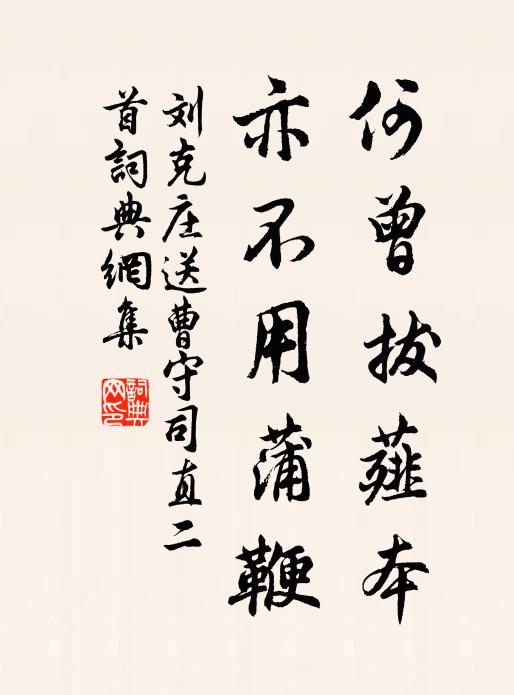 何曾拔薤本
亦不用蒲鞭
刘克庄送曹守司直二
首詞典網集
詞典
网印